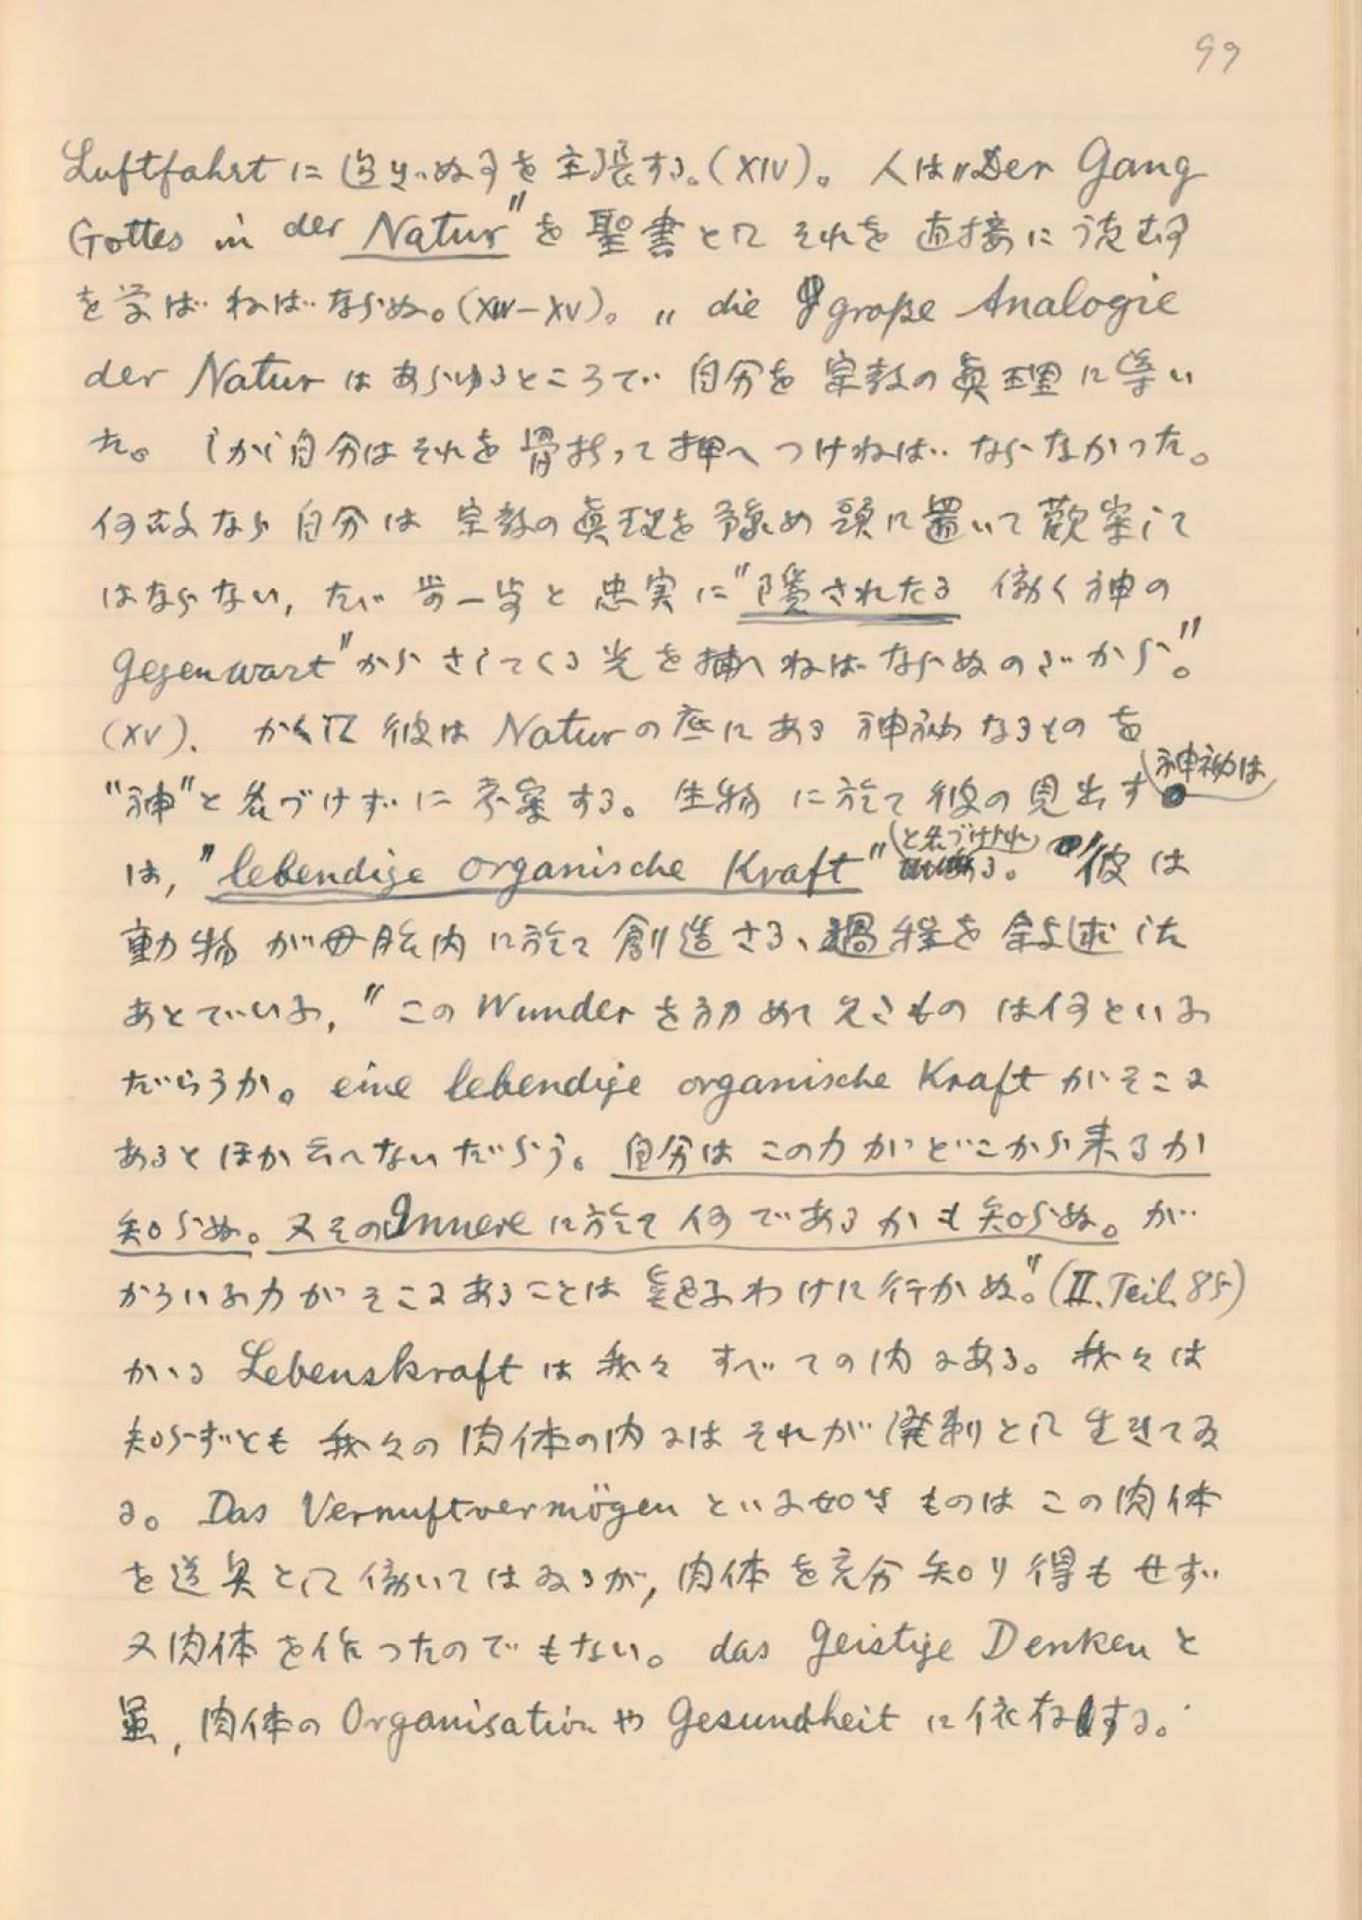 99
Luftfahrt に過ぎぬ事を主張する。(XIV)。 人は "Der Gang
Gottes in der Natur" を聖書として それを 直接に 読む事
を学ばねばならぬ。(XIV-XV)。 " die große Analogie
der Natur はあらゆるところで 自分を 宗教の眞理に導い
た。 しかし自分はそれを 骨折って押へつけねば ならなかった。
何故なら自分は 宗教の眞理を予め頭に置いて觀察して
はならない, たゞ 歩一歩と 忠実に "隠されたる 働く神の
Gegenwart" からさしてくる光を捕へねばならぬのだから。"
(XV). かくして彼は Natur の底にある 神秘なるものを
"神"と名づけずに考案する。 生物 に於て彼の見出す 神秘は
は, "lebendige organische Kraft" と名づけられ る。 彼は
動物が母胎内に於て 創造さるゝ過程を叙述した
あとでいふ, " この Wunder を初めて見るもの は何といふ
だらうか。 eine lebendige organische Kraft がそこに
あるとほか云へないだらう。 自分は この力がどこから来るか
知らぬ。 又その Innere に於て何であるかも知らぬ。 が
かういふ力がそこにあることは 疑ふわけに行かぬ。" (II. Teil. 85)
かゝる Lebenskraft は我々 すべての内にある。 我々は
知らずとも 我々の肉体の内にはそれが溌剌として生きてゐ
る。 Das Vernuftvermögen といふ如き ものは この肉体
を道具として働いてはゐるが, 肉体を充分知り得もせず
又肉体を作ったのでもない。 das geistige Denken と
虽, 肉体の Organisation や Gesundheit に依存する。